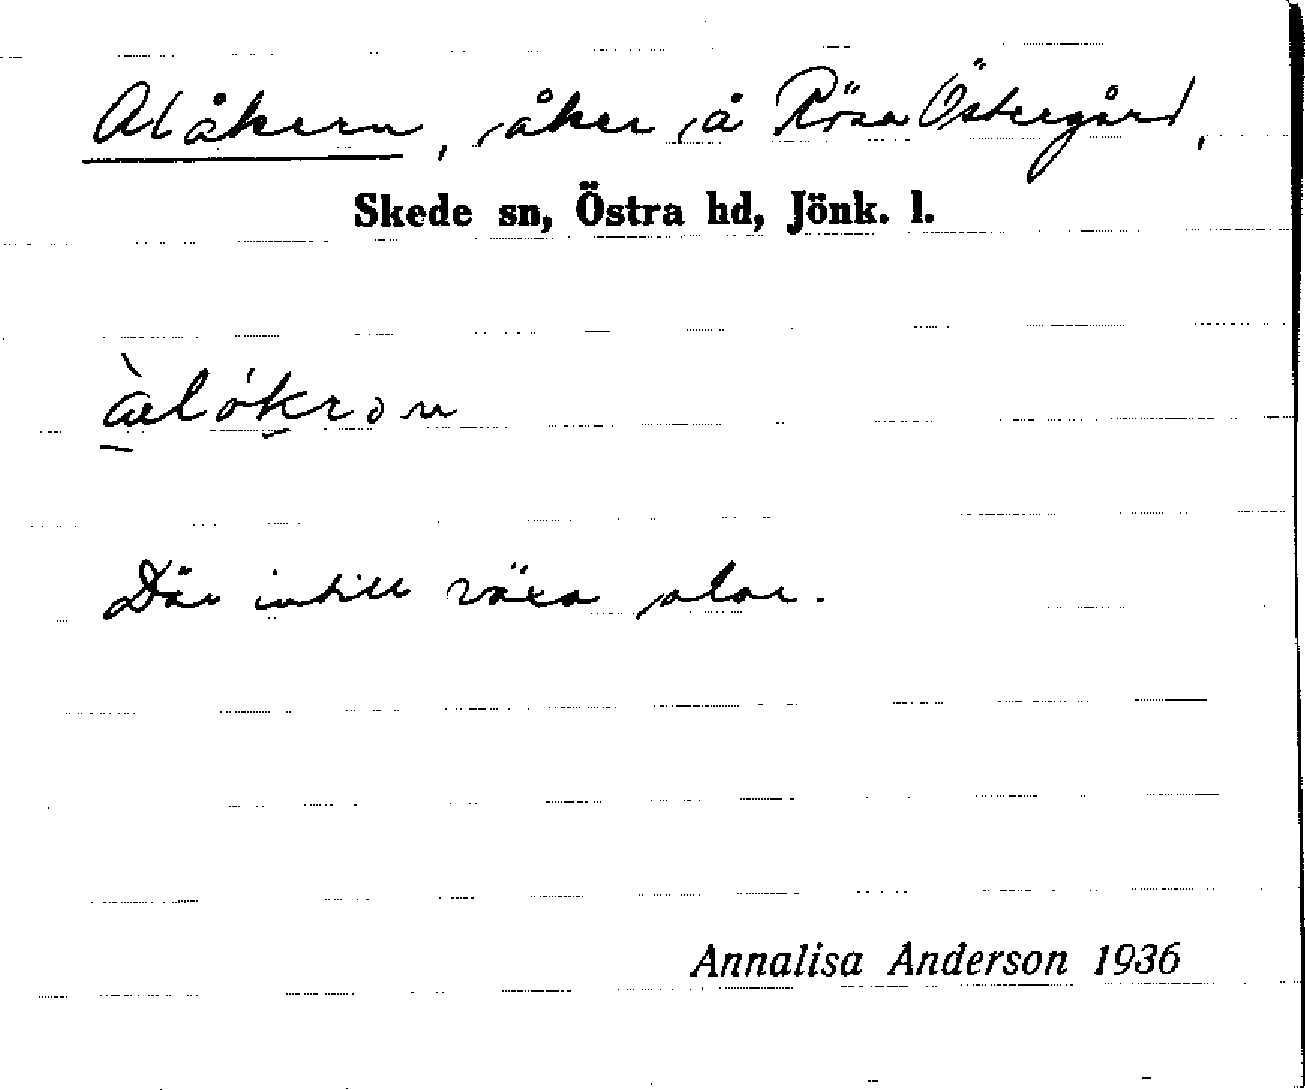 Alåkern, åker å Rösa Östergård,
Skede sn, Östra hd, Jönk. l.
àlókrən
Där intill växa alar.
Annalisa Anderson 1936